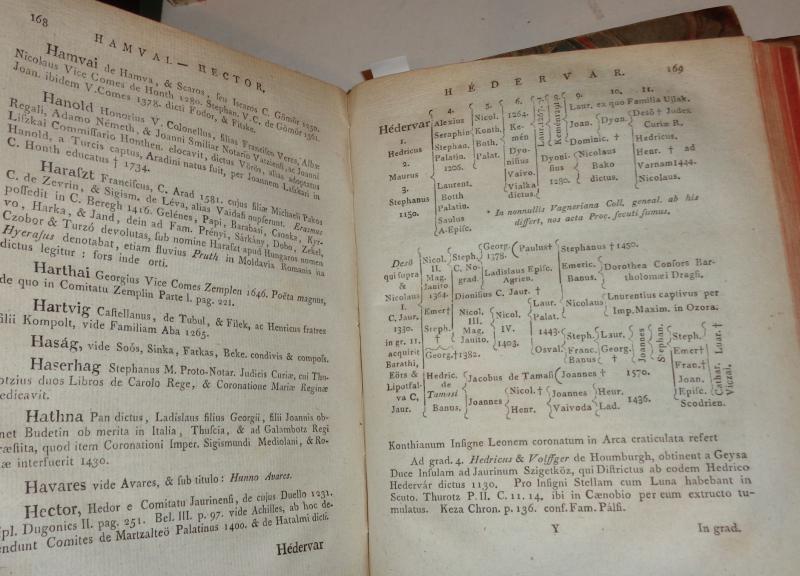 168
HAMVAI — HECTOR.
Hamvai de Hamva, & Scaros, seu Iscaros C. Gömör 1250.
Nicolaus Vice Comes de Honth 1280. Stephan. V. C. de Gömör 1361.
Joan. ibidem V. Comes 1378. dicti Fodor, & Fitske.
Hanold Honorius V. Colonellus, filias Francisc. Veres, Albæ
Regali, Adamo Németh, & Joanni Similiar Notario Vatziensi, ac Joanni
Lifzkai Commissario Honthen. elocavit, dictus Vörös, alias adoptatus
Hanold, a Turcis captus, Aradini natus fuit, per Joannem Lifzkai in
C. Honth educatus † 1734.
Harafzt Franciscus, C. Arad 1581. cujus filiæ Michaeli Pakos
C. de Zevrin, & Sigism. de Léva, alias Vaidafi nupserunt. Erasmus
possedit in C. Beregh 1416. Gelénes, Papi, Barabási, Csonka, Kyr-
vo, Harka, & Jand, dein ad Fam. Prényi, Sárkány, Dobo, Zekel,
Czobor & Turzó devolutas, sub nomine Harafzt apud Hungaros nomen
Hyerasus denotabat, etiam fluvius Pruth in Moldavia Romanis ita
dictus legitur: fors inde orti.
Harthai Georgius Vice Comes Zemplen 1646. Poëta magnus,
de quo in Comitatu Zemplin Parte I. pag. 221.
Hartvig Castellanus, de Tubul, & Filek, ac Henricus fratres
filii Kompolt, vide Familiam Aba 1265.
Haság, vide Soós, Sinka, Farkas, Beke. condivis & composs.
Haserhag Stephanus M. Proto-Notar. Judicis Curiæ, cui Thu-
rotzius duos Libros de Carolo Rege, & Coronatione Mariæ Reginæ
dedicavit.
Hathna Pan dictus, Ladislaus filius Georgii, filii Joannis ob-
net Budetin ob merita in Italia, Thuscia, & ad Galambotz Regi
præstita, quod item Coronationi Imper. Sigismundi Mediolani, & Ro-
mæ interfuerit 1430.
Havares vide Avares, & sub titulo: Hunno Avares.
Hector, Hedor e Comitatu Jaurinensi, de cujus Duello 1231.
Dugonics II. pag. 251. Bel. III. p. 97. vide Achilles, ab hoc de-
scendunt Comites de Martzalteö Palatinus 1400. & de Hatalmi dicti.
Hédervar
HÉDERVÁR.
169
Hédervar
1.
Hedricus
2.
Maurus
3.
Stephanus
1150.
4.
Alexius
Seraphin
Stephan.
Palatin.
1206.
Laurent.
Botth
Palatin.
Saulus
A-Episc.
5.
Nicol.
Konth.
Both.
Palat.
6.
1264.
Ke-
mén
Dyo-
nisius
Vaivo.
Vialka
dictus.
9. 10. 11.
Laur. ex quo Familia Ujlak.
Joan.
Dominic. †
Dyoni-
sius
1280.
Dyon.
Nicolaus
Bako
dictus.
Desö † Judex
Curiæ R.
Hedricus.
Henr. † ad
Varnam 1444.
Nicolaus.
* In nonnullis Vagneriana Coll. geneal. ab his
differt, nos acta Proc. secuti sumus.
Desö
qui supra
&
Nicolaus
I.
C. Jaur.
1330.
in gr. 11.
acquirit
Barathi,
Eörs &
Lipotfal-
va C,
Jaur.
Nicol.
II.
Mag.
Janito
1364.
Emer†
Steph.
Georg. † 1382.
Steph.
C. No-
grad.
Georg.
1378.
Paulus†
Ladislaus Episc.
Agrien.
Dionisius C. Jaur. †
Stephanus † 1450.
Emeric.
Banus.
Dorothea Consors Bar-
tholomæi Dragfi.
Nicol.
III.
Mag.
Janito.
Nicol.
IV.
1403.
Laur.
Palat.
1443.
Osval.
Nicolaus
Laurentius captivus per
Imp. Maxim. in Ozora.
Steph.
Franc.
Banus
Laur.
Georg.
†
Joannes
Stephan.
Steph.
Emer†
Fran. †
Joan.
Episc.
Scodrien.
Cathar. Luar. †
Viczai.
Hedric.
de
Tamasi
Banus.
Jacobus de Tamasi
Joannes † 1570.
Joannes
Nicol. †
Henr.
Joannes
Vaivoda
Henr.
Lad.
1436.
Konthianum Insigne Leonem coronatum in Arca craticulata refert
Ad grad. 4. Hedricus & Volffger de Houmburgh, obtinent a Geysa
Duce Insulam ad Jaurinum Szigetköz, qui Districtus ab eodem Hedrico
Hedervár dictus 1130. Pro Insigni Stellam cum Luna habebant in
Scuto. Thurotz P. II. C. 11. 14. ibi in Cænobio per eum extructo tu-
mulatus. Keza Chron. p. 136. conf. Fam. Pálfi.
Y
In grad.